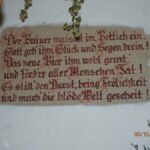 Der Brauer maischt im Bottich ein
Gott geb ihm Glück und Segen drein!
Das neue Bier ihm wohl gerat
und förder aller Menschen Tat!
Es still den Durst, bring Frölichkeit
und mach die blöde Welt gescheit!